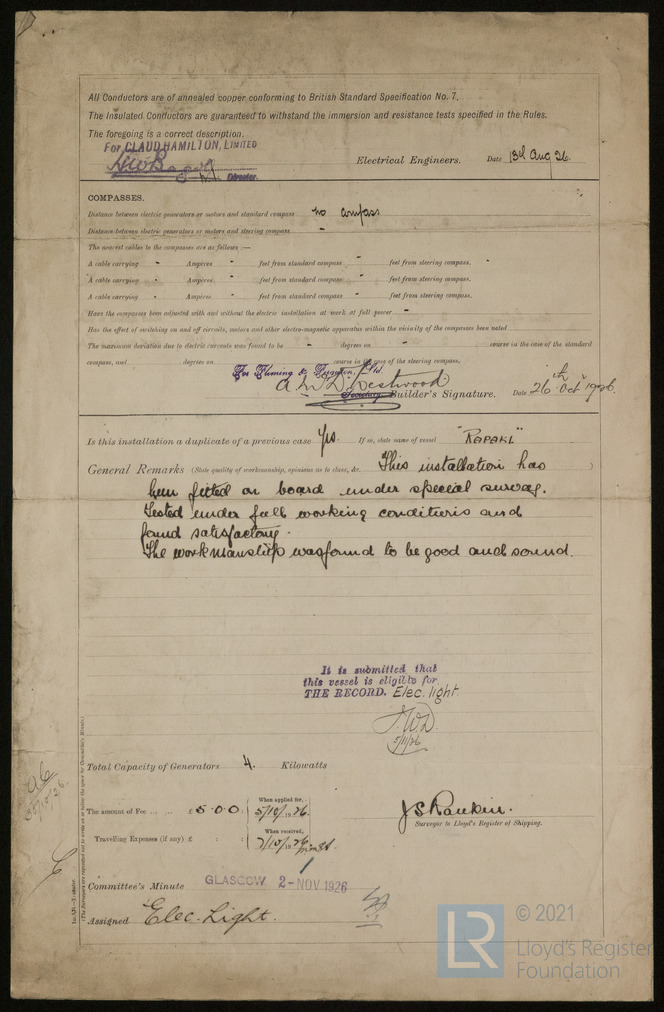 All Conductors are of annealed copper conforming to British Standard Specification No. 7.
The Insulated Conductors are guaranteed to withstand the immersion and resistance tests specified in the Rules.
The foregoing is a correct description.
For CLAUD HAMILTON, LIMITED
Director.
Electrical Engineers. Date 13th Aug 26.
COMPASSES.
Distance between electric generators or motors and standard compass no compass
Distance between electric generators or motors and steering compass "
The nearest cables to the compasses are as follows :—
A cable carrying " Ampères " feet from standard compass " feet from steering compass.
A cable carrying " Ampères " feet from standard compass " feet from steering compass.
A cable carrying " Ampères " feet from standard compass " feet from steering compass.
Have the compasses been adjusted with and without the electric installation at work at full power "
Has the effect of switching on and off circuits, motors and other electro-magnetic apparatus within the vicinity of the compasses been noted
The maximum deviation due to electric currents was found to be " degrees on " course in the case of the standard
compass, and degrees on course in the case of the steering compass.
For Fleming & Ferguson, Ltd.
Westwood
Secretary. Builder's Signature. Date 26th Oct 1926.
Is this installation a duplicate of a previous case Yes. If so, state name of vessel "RAPAKI"
General Remarks (State quality of workmanship, opinions as to class, &c. This installation has )
been fitted on board under special survey.
Tested under full working conditions and
found satisfactory.
The workmanship was found to be good and sound.
It is submitted that
this vessel is eligible for
THE RECORD. Elec. light.
5/11/26
Total Capacity of Generators 4. Kilowatts
The amount of Fee ... ... £ 5 : 0 : 0 : When applied for, 5/10/1926.
Travelling Expenses (if any) £ : : When received, 7/10/1926
J S Rankin.
Surveyor to Lloyd's Register of Shipping.
Committee's Minute GLASGOW 2-NOV 1926
Assigned Elec. Light.
© 2021
LR Lloyd's Register
Foundation